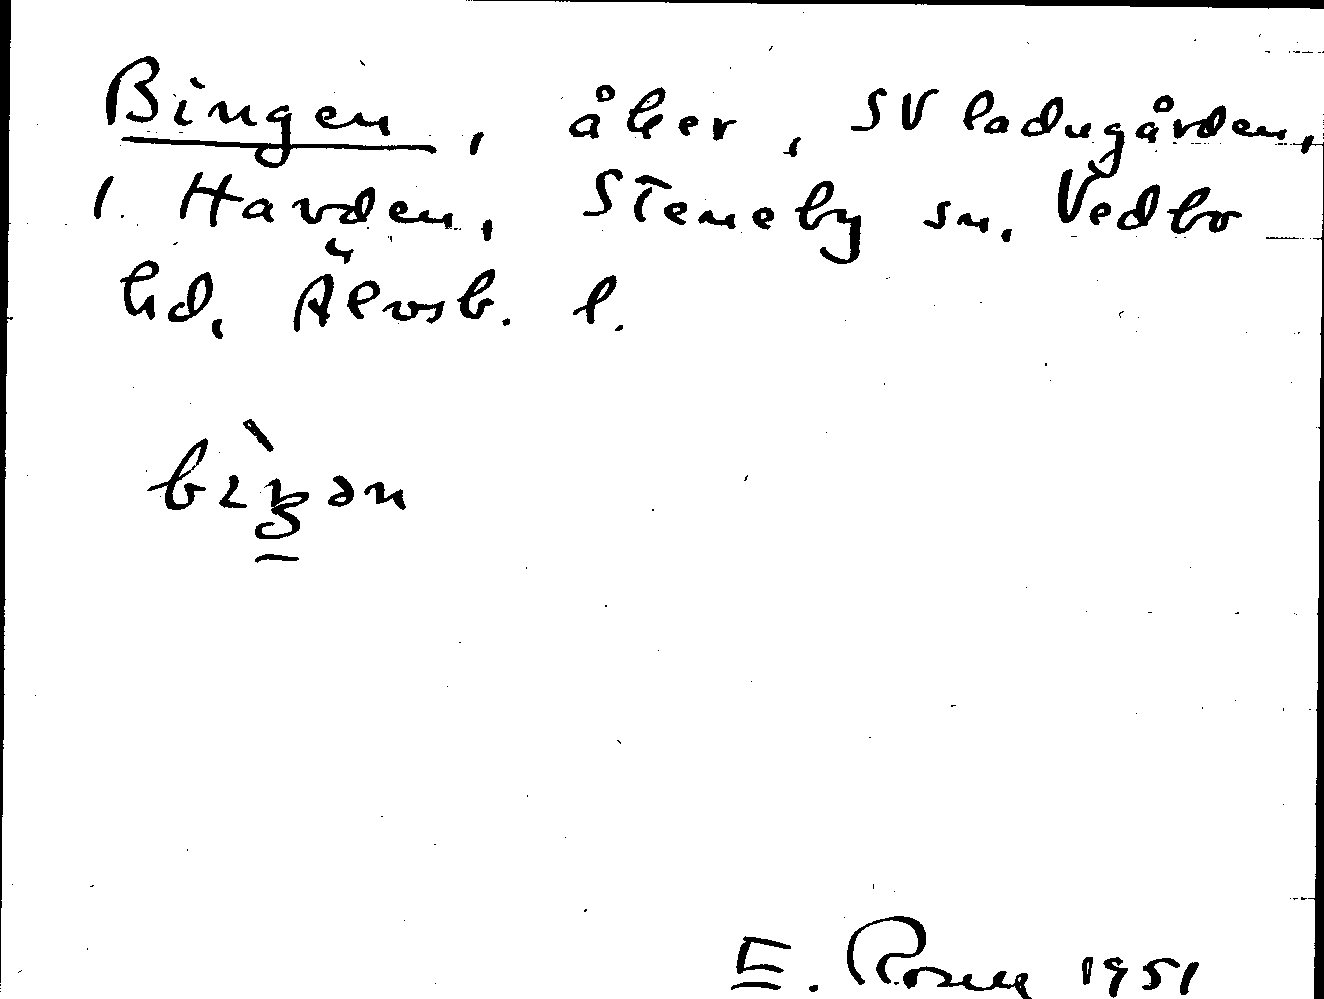 Bingen, åker, SV ladugården,
1. Havden, Steneby sn. Vedbo
hd. Älvsb. l.
E. Rosen 1951